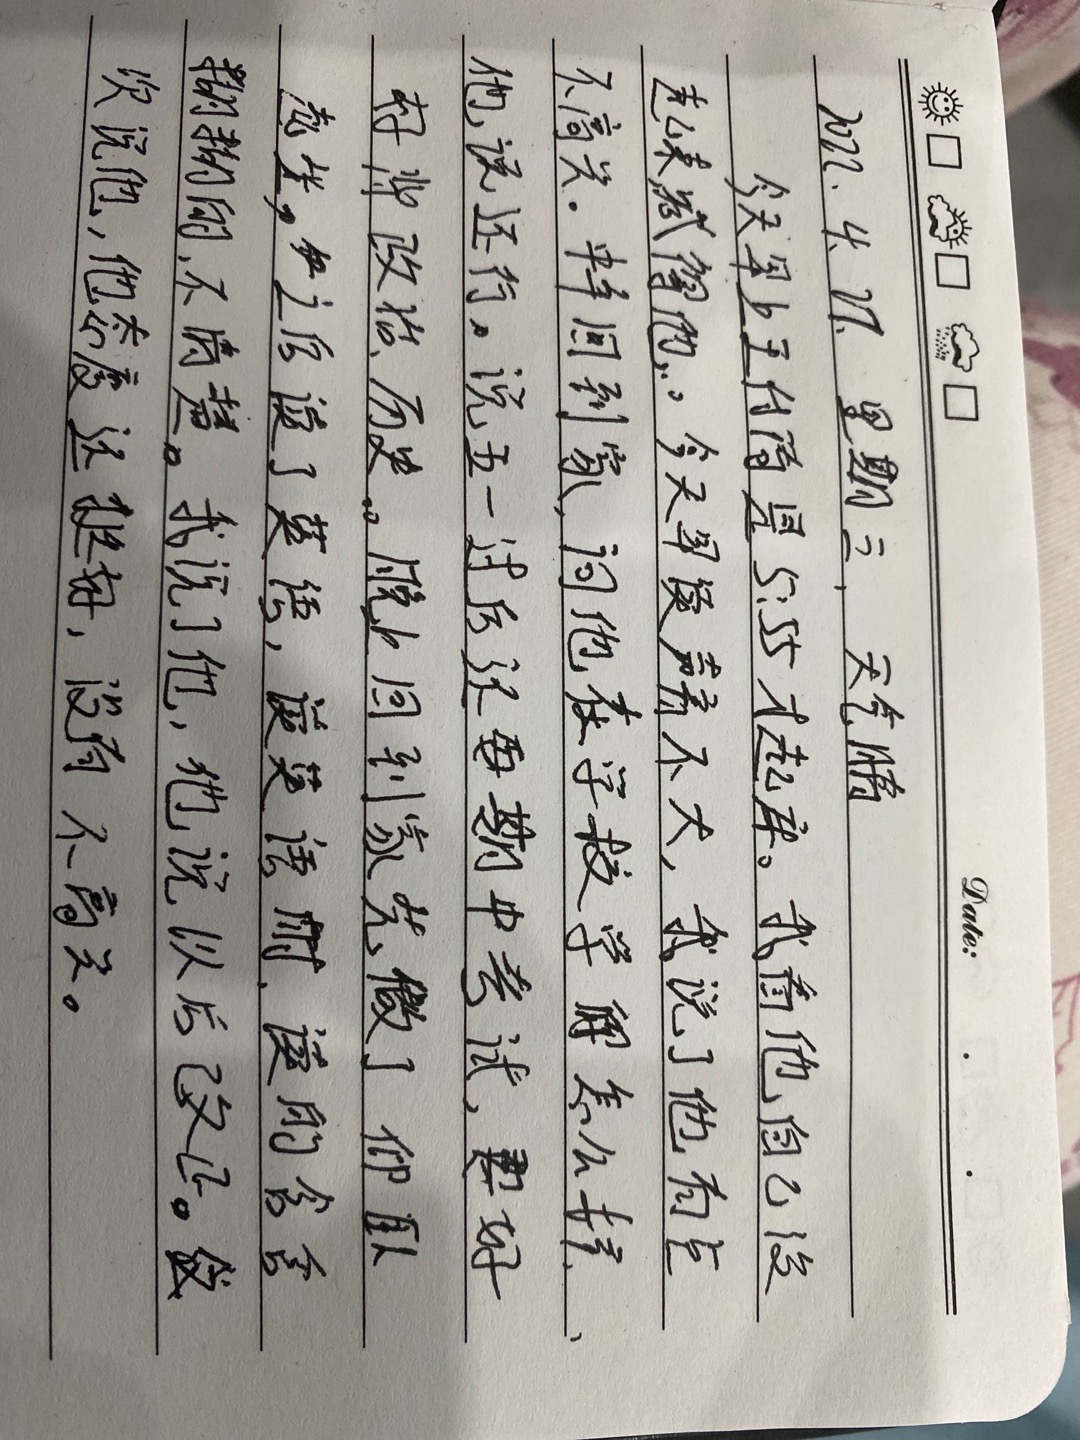 Date:
2022.4.27. 星期三, 天气晴
今天早上王付隆是5:55才起床。我看他自己没
起来就催他。今天早读声音不大,我说了他有点
不高兴。中午回到家,问他在学校学得怎么样、
他说还行。说五一过后还要期中考试,要好
好背政治、历史。晚上回到家先做了仰卧
起坐,之后读了英语,读英语时、读的含含
糊糊的,不清楚。我说了他,他说以后改正。
次说他,他态度还挺好,没有不高兴。